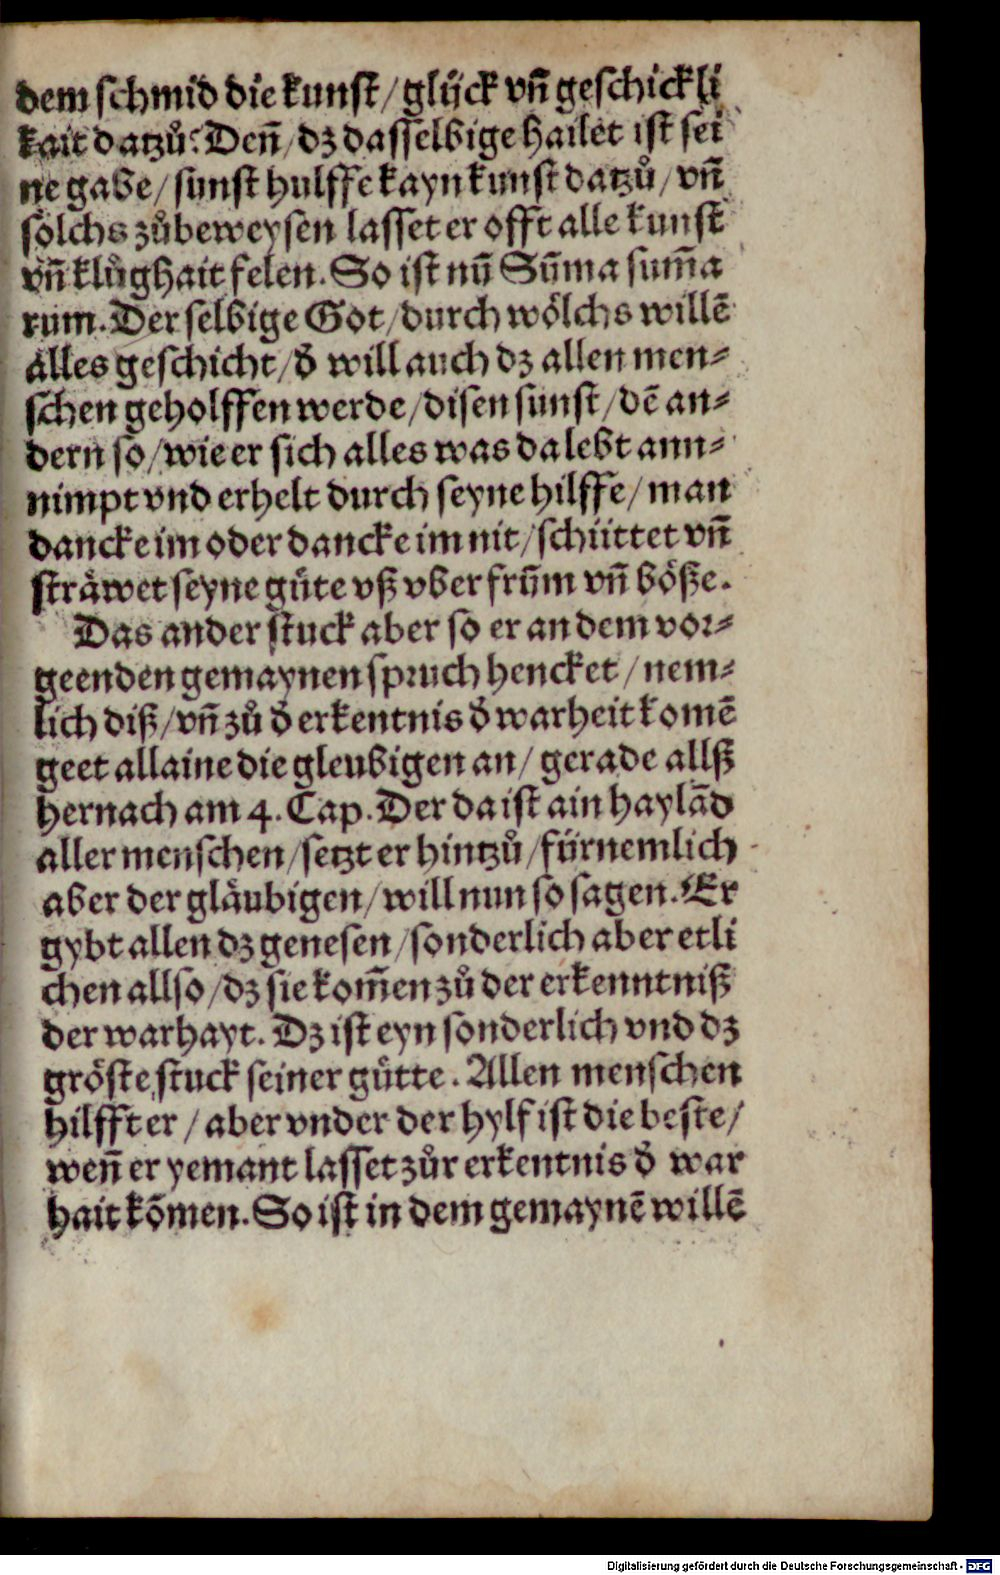 dem schmid die kunst/ glück vñ geschickli
kait datzů. Deñ/ dz dasselbige hailet ist sei
ne gabe/ sunst hulffe kayn kunst datzů/ vñ
sölchs zůbeweysen lasset er offt alle kunst
vñ klůghait felen. So ist nū Sūma sum̃a
rum. Der selbige Got/ durch wölchs willē
alles geschicht/ ð will auch dz allen men⸗
schen geholffen werde/ disen sunst/ dē an⸗
dern so/ wie er sich alles was da lebt ann⸗
nimpt vnd erhelt durch seyne hilffe/ man
dancke im oder dancke im nit/ schüttet vñ
sträwet seyne güte vß vber frūm vñ böße.
Das ander stuck aber so er an dem vor⸗
geenden gemaynen spruch hencket/ nem⸗
lich diß/ vñ zů ð erkentnis ð warheit komē
geet allaine die gleubigen an/ gerade allß
hernach am 4. Cap. Der da ist ain haylād
aller menschen/ setzt er hintzů/ fürnemlich
aber der gläubigen/ will nun so sagen. Er
gybt allen dz genesen/ sonderlich aber etli
chen allso/ dz sie kom̃en zů der erkenntniß
der warhayt. Dz ist eyn sonderlich vnd dz
gröste stuck seiner gütte. Allen menschen
hilfft er/ aber vnder der hylf ist die beste/
weñ er yemant lasset zůr erkentnis ð war
hait kōmen. So ist in dem gemaynē willē
Digitalisierung gefördert durch die Deutsche Forschungsgemeinschaft - DFG